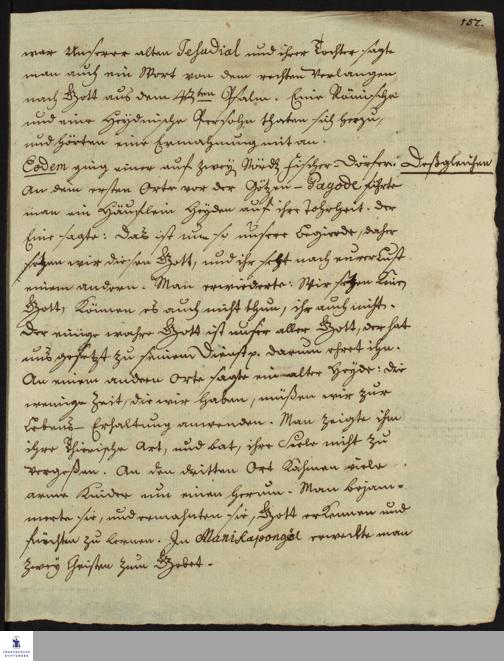 157.
war unserer alten Jesudial und ihrer Tochter sagte
man auch ein Wort von dem rechten Verlangen
nach Gott aus dem 42ten Psalm. Eine Römische
und eine Heydnische Persohn thaten sich herzu,
und hörten eine Ermahnung mit an.
Eodem ging einer auf zwey Fischer-Dörfer: Deßgleichen
An dem ersten Orte vor der Götzen-Pagode führte
man ein Häuflein Heyden auf ihre Thorheit. Der
Eine sagte: Das ist nun so unsere Begierde, daher
setzen wir diesen Gott, und ihr setzt nach eurer Lust
einen andern. Man erwiederte: Wir setzen keinen
Gott, können es auch nicht thun, ihr auch nicht.
Der einige wahre Gott ist unser aller Gott, der hat
uns gesetzt zu seinem Dienst p. darum ehret ihn.
An einem andern Orte sagte ein alter Heyde: die
wenige Zeit, die wir haben, müßen wir zur
Lebens-Erhaltung anwenden. Man zeigte ihm
ihre Thierische Art, und bat, ihre Seele nicht zu
vergeßen. An den dritten Ort kahmen viele
arme Kinder um einen herum. Man bejam-
merte sie, und ermahnten sie, Gott erkennen und
fürchten zu lernen. In Manikapongöl erweckte man
zwey Christen zum Gebet.
FRANCKESCHE
STIFTUNGEN